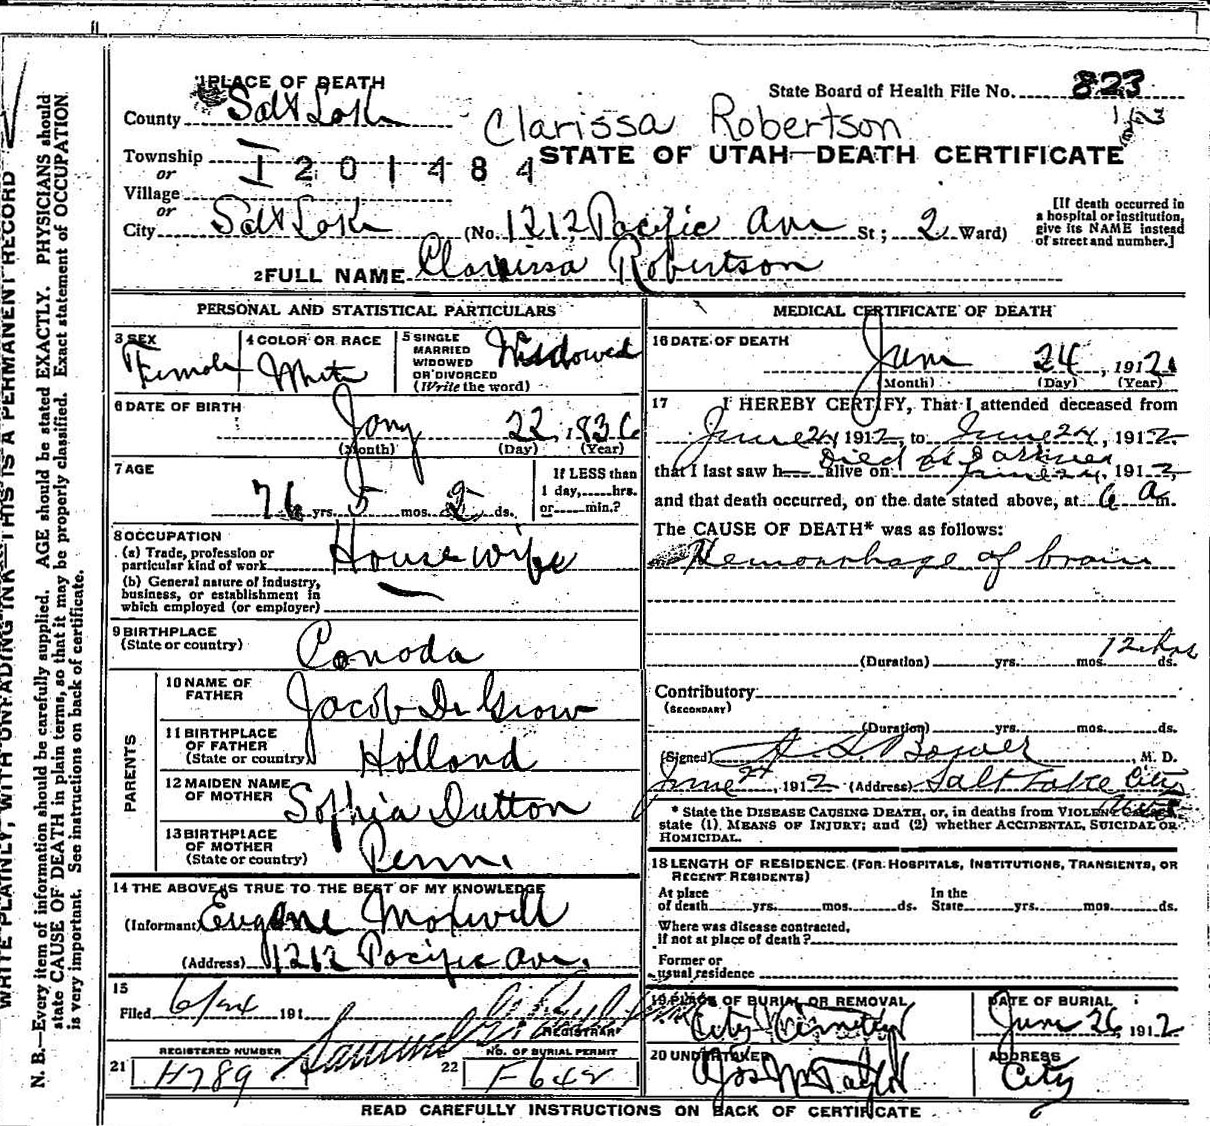 WRITE PLAINLY, WITH UNFADING INK—THIS IS A PERMANENT RECORD
N. B.—Every item of information should be carefully supplied. AGE should be stated EXACTLY. PHYSICIANS should
state CAUSE OF DEATH in plain terms, so that it may be properly classified. Exact statement of OCCUPATION
is very important. See instructions on back of certificate.
1 PLACE OF DEATH
State Board of Health File No. 823
County Salt Lake
Clarissa Robertson
Township
or
I 201484
STATE OF UTAH—DEATH CERTIFICATE
Village
or
City Salt Lake (No. 1212 Pacific Ave St; 2 Ward)
[If death occurred in
a hospital or institution,
give its NAME instead
of street and number.]
2 FULL NAME Clarissa Robertson
PERSONAL AND STATISTICAL PARTICULARS
3 SEX
Female
4 COLOR OR RACE
White
5 SINGLE
MARRIED
WIDOWED
OR DIVORCED
(Write the word)
Widowed
6 DATE OF BIRTH
Jany 22, 1836
(Month) (Day) (Year)
7 AGE
76 yrs. 5 mos. 2 ds.
If LESS than
1 day,......hrs.
or......min.?
8 OCCUPATION
(a) Trade, profession or
particular kind of work
House wife
(b) General nature of industry,
business, or establishment in
which employed (or employer)
9 BIRTHPLACE
(State or country)
Canada
PARENTS
10 NAME OF
FATHER
Jacob De Grow
11 BIRTHPLACE
OF FATHER
(State or country)
Holland
12 MAIDEN NAME
OF MOTHER
Sophia Dutton
13 BIRTHPLACE
OF MOTHER
(State or country)
Penn.
14 THE ABOVE IS TRUE TO THE BEST OF MY KNOWLEDGE
(Informant) Eugene
(Address) 1212 Pacific Ave.
15
Filed 6/24 191
REGISTRAR
21
REGISTERED NUMBER
H789
22
NO. OF BURIAL PERMIT
F642
MEDICAL CERTIFICATE OF DEATH
16 DATE OF DEATH
June 24, 1912
(Month) (Day) (Year)
17 I HEREBY CERTIFY, That I attended deceased from
June 24 1912, to June 24, 1912
Died
that I last saw h alive on June 24, 1912,
and that death occurred, on the date stated above, at 6 a m.
The CAUSE OF DEATH* was as follows:
Hemorrhage of brain
12 hrs
(Duration) yrs. mos. ds.
Contributory
(SECONDARY)
(Duration) yrs. mos. ds.
(Signed) Bower, M. D.
June 24, 1912 (Address) Salt Lake City
* State the DISEASE CAUSING DEATH, or, in deaths from VIOLENT CAUSES,
state (1) MEANS OF INJURY; and (2) whether ACCIDENTAL, SUICIDAL OR
HOMICIDAL.
18 LENGTH OF RESIDENCE (FOR HOSPITALS, INSTITUTIONS, TRANSIENTS, OR
RECENT RESIDENTS)
At place
of death yrs. mos. ds.
In the
State yrs. mos. ds.
Where was disease contracted,
if not at place of death?
Former or
usual residence
19 PLACE OF BURIAL OR REMOVAL
City Cemetery
DATE OF BURIAL
June 26, 1912
20 UNDERTAKER
Jos Wm Taylor
ADDRESS
City
READ CAREFULLY INSTRUCTIONS ON BACK OF CERTIFICATE